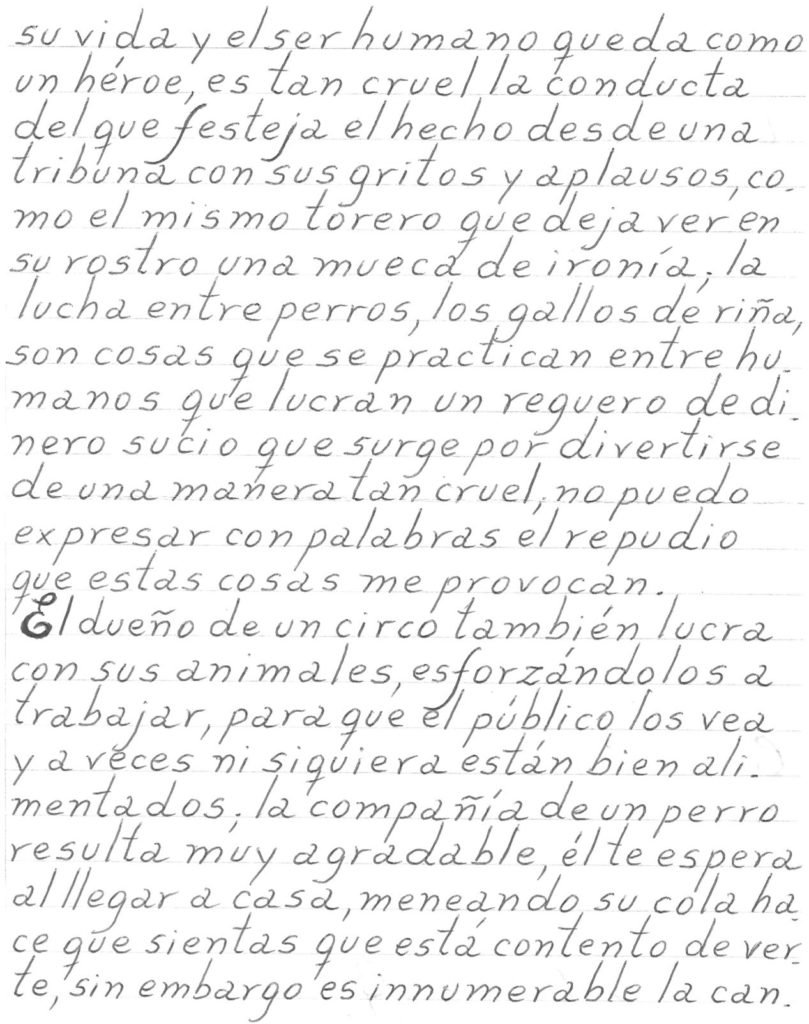 su vida y el ser humano queda como
un héroe, es tan cruel la conducta
del que festeja el hecho desde una
tribuna con sus gritos y aplausos, co-
mo el mismo torero que deja ver en
su rostro una mueca de ironía; la
lucha entre perros, los gallos de riña,
son cosas que se practican entre hu-
manos que lucran un reguero de di-
nero sucio que surge por divertirse
de una manera tan cruel; no puedo
expresar con palabras el repudio
que estas cosas me provocan.
El dueño de un circo también lucra
con sus animales, esforzándolos a
trabajar, para que el público los vea
y a veces ni siquiera están bien ali-
mentados; la compañía de un perro
resulta muy agradable, él te espera
al llegar a casa, meneando su cola ha-
ce que sientas que está contento de ver-
te, sin embargo es innumerable la can-